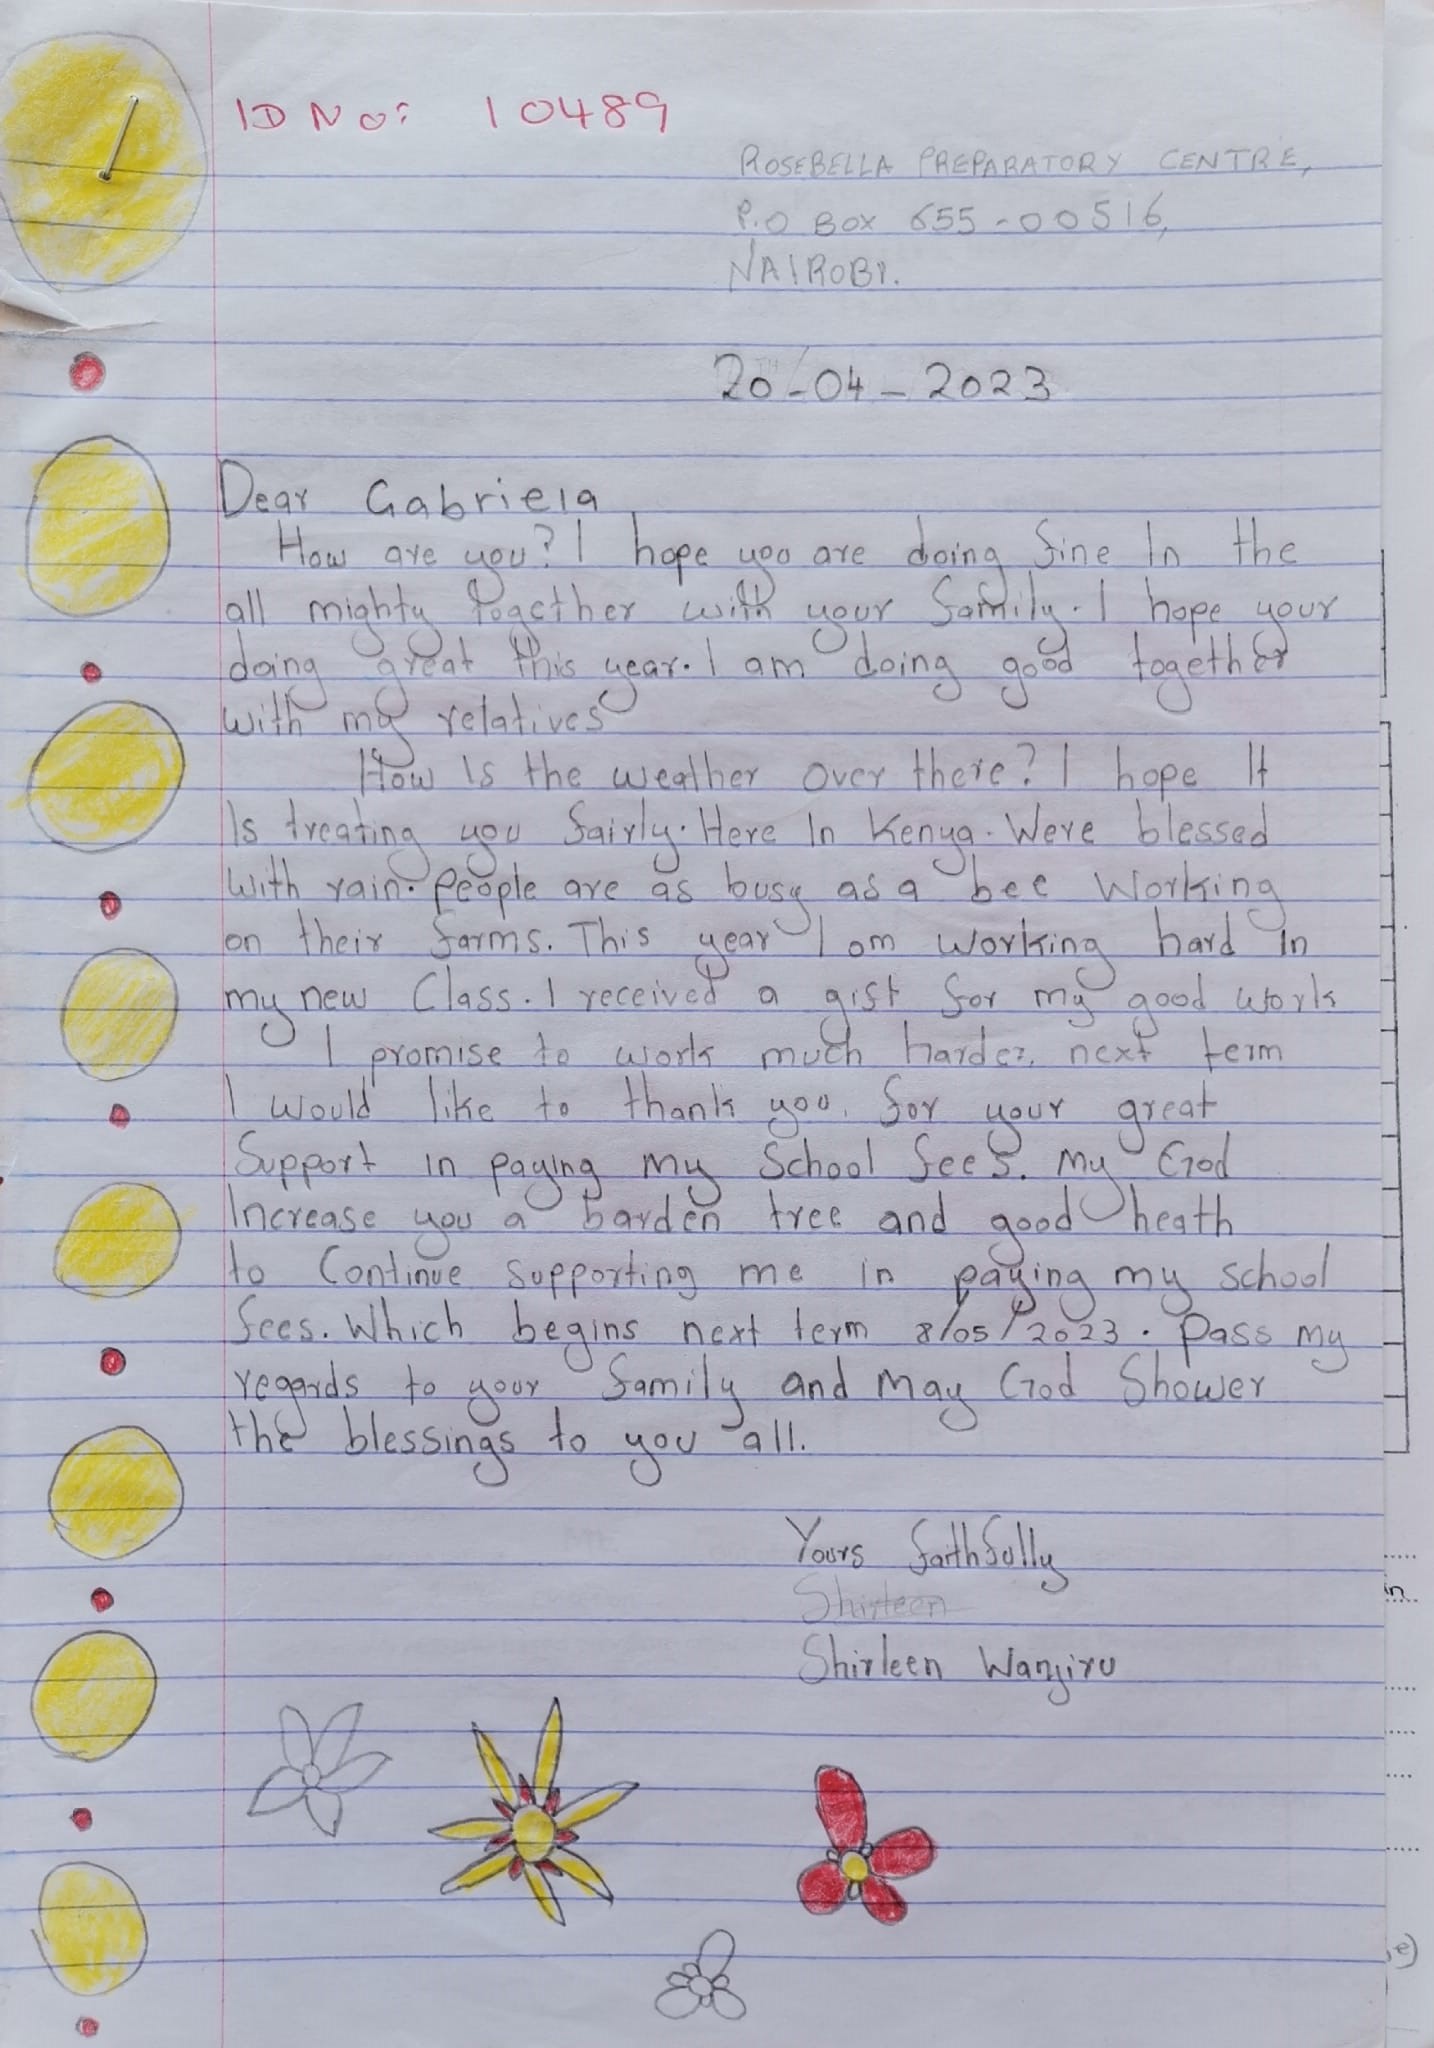 ID No: 10489
ROSEBELLA PREPARATORY CENTRE,
P.O BOX 655-00516,
NAIROBI.
20-04-2023
Dear Gabriela
How are you? I hope you are doing fine In the
all mighty together with your family. I hope your
doing great this year. I am doing good together
with my relatives
How Is the weather over there? I hope It
Is treating you fairly. Here In Kenya. Were blessed
with rain. people are as busy as a bee working
on their farms. This year I am working hard In
my new Class. I received a gift for my good work
I promise to work much harder. next term
I would like to thank you. for your great
Support in paying my School fees. My God
Increase you a barden tree and good heath
to Continue supporting me in paying my school
fees. Which begins next term 8/05/2023. Pass my
regards to your family and May God Shower
the blessings to you all.
Yours faithfully
Shirleen
Shirleen Wanjiru